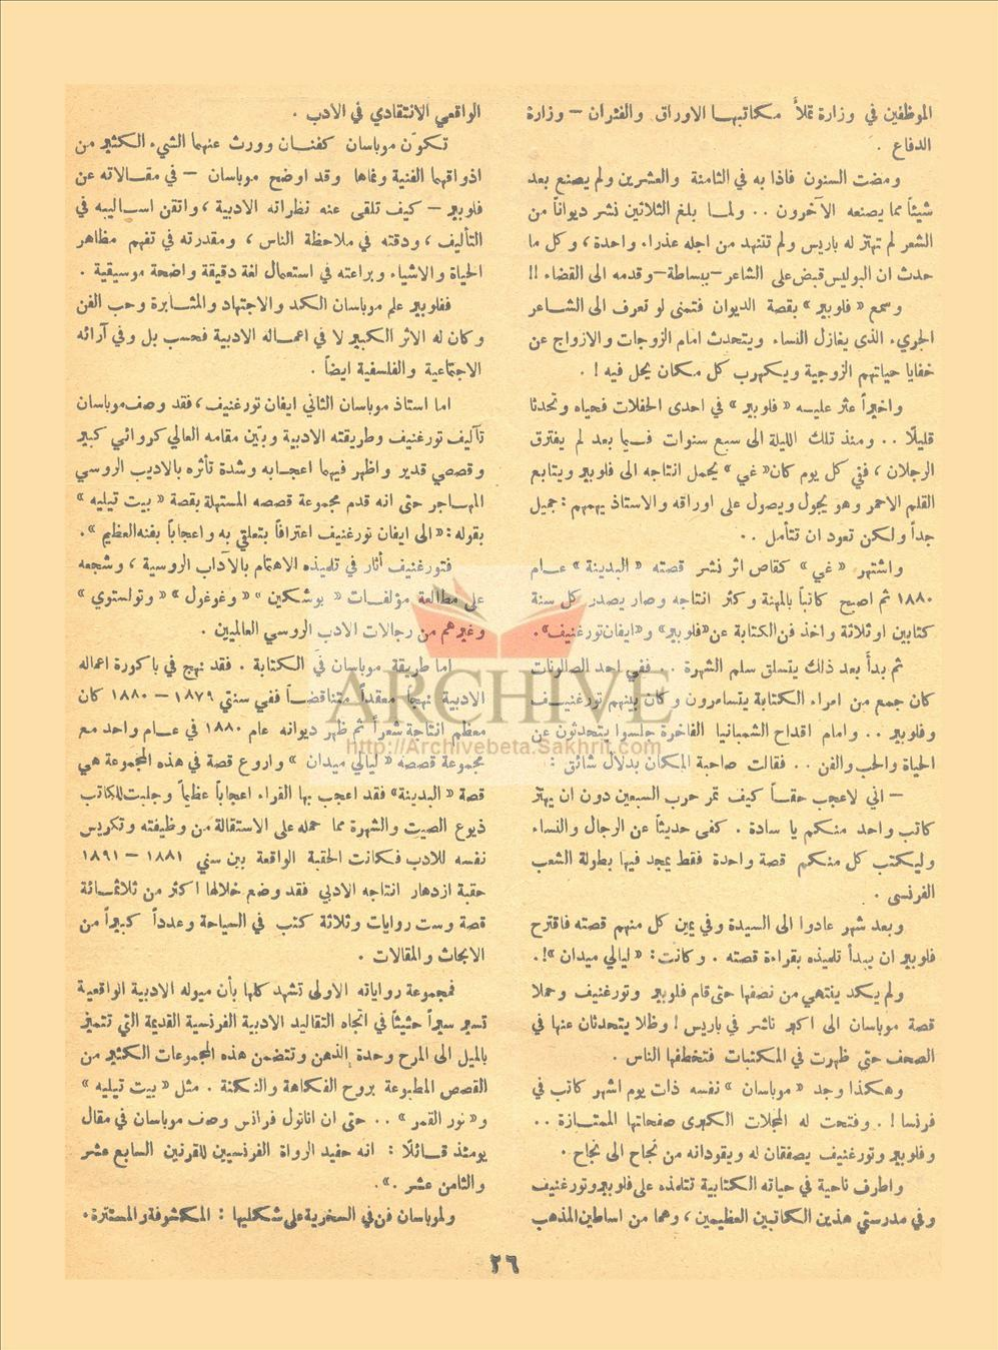 الموظفين في وزارة تملأ مكاتبها الاوراق والفئران – وزارة
الدفاع .
ومضت السنون فاذا به في الثامنة والعشرين ولم يصنع بعد
شيئاً مما يصنعه الآخرون .. ولما بلغ الثلاثين نشر ديواناً من
الشعر لم تهتز له باريس ولم تتنهد من اجله عذراء واحدة ، وكل ما
حدث ان البوليس قبض على الشاعر –ببساطة– وقدمه الى القضاء !!
وسمع « فلوبير » بقصة الديوان فتمنى لو تعرف الى الشاعر
الجريء الذى يغازل النساء ويتحدث امام الزوجات والازواج عن
خفايا حياتهم الزوجية ويكهرب كل مكان يحل فيه ! .
واخيراً عثر عليه « فلوبير » في احدى الحفلات فحياه وتحدثا
قليلًا .. ومنذ تلك الليلة الى سبع سنوات فيما بعد لم يفترق
الرجلان ، ففي كل يوم كان « غي » يحمل انتاجه الى فلوبير ويتابع
القلم الاحمر وهو يجول ويصول على اوراقه والاستاذ يهمهم : جميل
جداً ولكن تعود ان تتأمل ..
واشتهر « غي » كقاص اثر نشر قصته « البدينة » عام
١٨٨٠ ثم اصبح كاتباً بالمهنة وكثر انتاجه وصار يصدر كل سنة
كتابين او ثلاثة واخذ فن الكتابة عن «فلوبير» و«ايفان تورغنيف».
ثم بدأ بعد ذلك يتسلق سلم الشهرة .. ففي احد الصالونات
كان جمع من امراء الكتابة يتسامرون وكان بينهم تورغنيف
وفلوبير .. وامام اقداح الشمبانيا الفاخرة جلسوا يتحدثون عن
الحياة والحب والفن .. فقالت صاحبة المكان بدلال شائق :
– اني لاعجب حقاً كيف تمر حرب السبعين دون ان يهتز
كاتب واحد منكم يا سادة . كفى حديثاً عن الرجال والنساء
وليكتب كل منكم قصة واحدة فقط يمجد فيها بطولة الشعب
الفرنسى .
وبعد شهر عادوا الى السيدة وفي يمين كل منهم قصته فاقترح
فلوبير ان يبدأ تلميذه بقراءة قصته . وكانت : « ليالي ميدان »!.
ولم يكد ينتهي من نصفها حتى قام فلوبير وتورغنيف وحملا
قصة موباسان الى اكبر ناشر في باريس ! وظلا يتحدثان عنها في
الصحف حتى ظهرت في المكتبات فتخطفها الناس .
وهكذا وجد « موباسان » نفسه ذات يوم اشهر كاتب في
فرنسا ! . وفتحت له المجلات الكبرى صفحاتها الممتازة ..
وفلوبير وتورغنيف يصفقان له ويقودانه من نجاح الى نجاح .
واطرف ناحية في حياته الكتابية تتلمذه على فلوبير وتورغنيف
وفي مدرستي هذين الكاتبين العظيمين ، وهما من اساطين المذهب
الواقعي الانتقادي في الادب .
تكوّن موباسان كفنان وورث عنهما الشيء الكثير من
اذواقهما الفنية ونماها وقد اوضح موباسان – في مقالاته عن
فلوبير – كيف تلقى عنه نظراته الادبية ، واتقن اساليبه في
التأليف ، ودقته في ملاحظة الناس ، ومقدرته في تفهم مظاهر
الحياة والاشياء وبراعته في استعمال لغة دقيقة واضحة موسيقية .
ففلوبير علم موباسان الكد والاجتهاد والمثابرة وحب الفن
وكان له الاثر الكبير لا في اعماله الادبية فحسب بل وفي آرائه
الاجتماعية والفلسفية ايضاً .
اما استاذ موباسان الثاني ايفان تورغنيف ، فقد وصف موباسان
تآليف تورغنيف وطريقته الادبية وبيّن مقامه العالي كروائي كبير
وقصصي قدير واظهر فيهما اعجابه وشدة تأثره بالاديب الروسي
المهاجر حتى انه قدم مجموعة قصصه المستهلة بقصة « بيت تيليه »
بقوله : « الى ايفان تورغنيف اعترافاً بتعلقي به واعجاباً بفنه العظيم ».
فتورغنيف أثار في تلميذه الاهتمام بالآداب الروسية ، وشجعه
على مطالعة مؤلفات « بوشكين » « وغوغول » « وتولستوي »
وغيرهم من رجالات الادب الروسي العالميين .
اما طريقة موباسان في الكتابة . فقد نهج في باكورة اعماله
الادبية نهجاً معقداً متناقضاً ففي سنتي ١٨٧٩ – ١٨٨٠ كان
معظم انتاجه شعراً ثم ظهر ديوانه عام ١٨٨٠ في عام واحد مع
مجموعة قصصه « ليالي ميدان » واروع قصة في هذه المجموعة هي
قصة « البدينة » فقد اعجب بها القراء اعجاباً عظيماً وجلبت للكاتب
ذيوع الصيت والشهرة مما حمله على الاستقالة من وظيفته وتكريس
نفسه للادب فكانت الحقبة الواقعة بين سني ١٨٨١ – ١٨٩١
حقبة ازدهار انتاجه الادبي فقد وضع خلالها اكثر من ثلاثمائة
قصة وست روايات وثلاثة كتب في السياحة وعدداً كبيراً من
الابحاث والمقالات .
فمجموعة رواياته الاولى تشهد كلها بأن ميوله الادبية الواقعية
تسير سيراً حثيثاً في اتجاه التقاليد الادبية الفرنسية القديمة التي تتميز
بالميل الى المرح وحدة الذهن وتتضمن هذه المجموعات الكثير من
القصص المطبوعة بروح الفكاهة والنكتة . مثل « بيت تيليه »
و« نور القمر » .. حتى ان اناتول فرانس وصف موباسان في مقال
يومئذ قائلًا : انه حفيد الرواة الفرنسيين للقرنين السابع عشر
والثامن عشر .».
ولموباسان فن في السخرية على شكليها : المكشوفة والمستترة .
٢٦
ARCHIVE
http://Archivebeta.Sakhrit.com